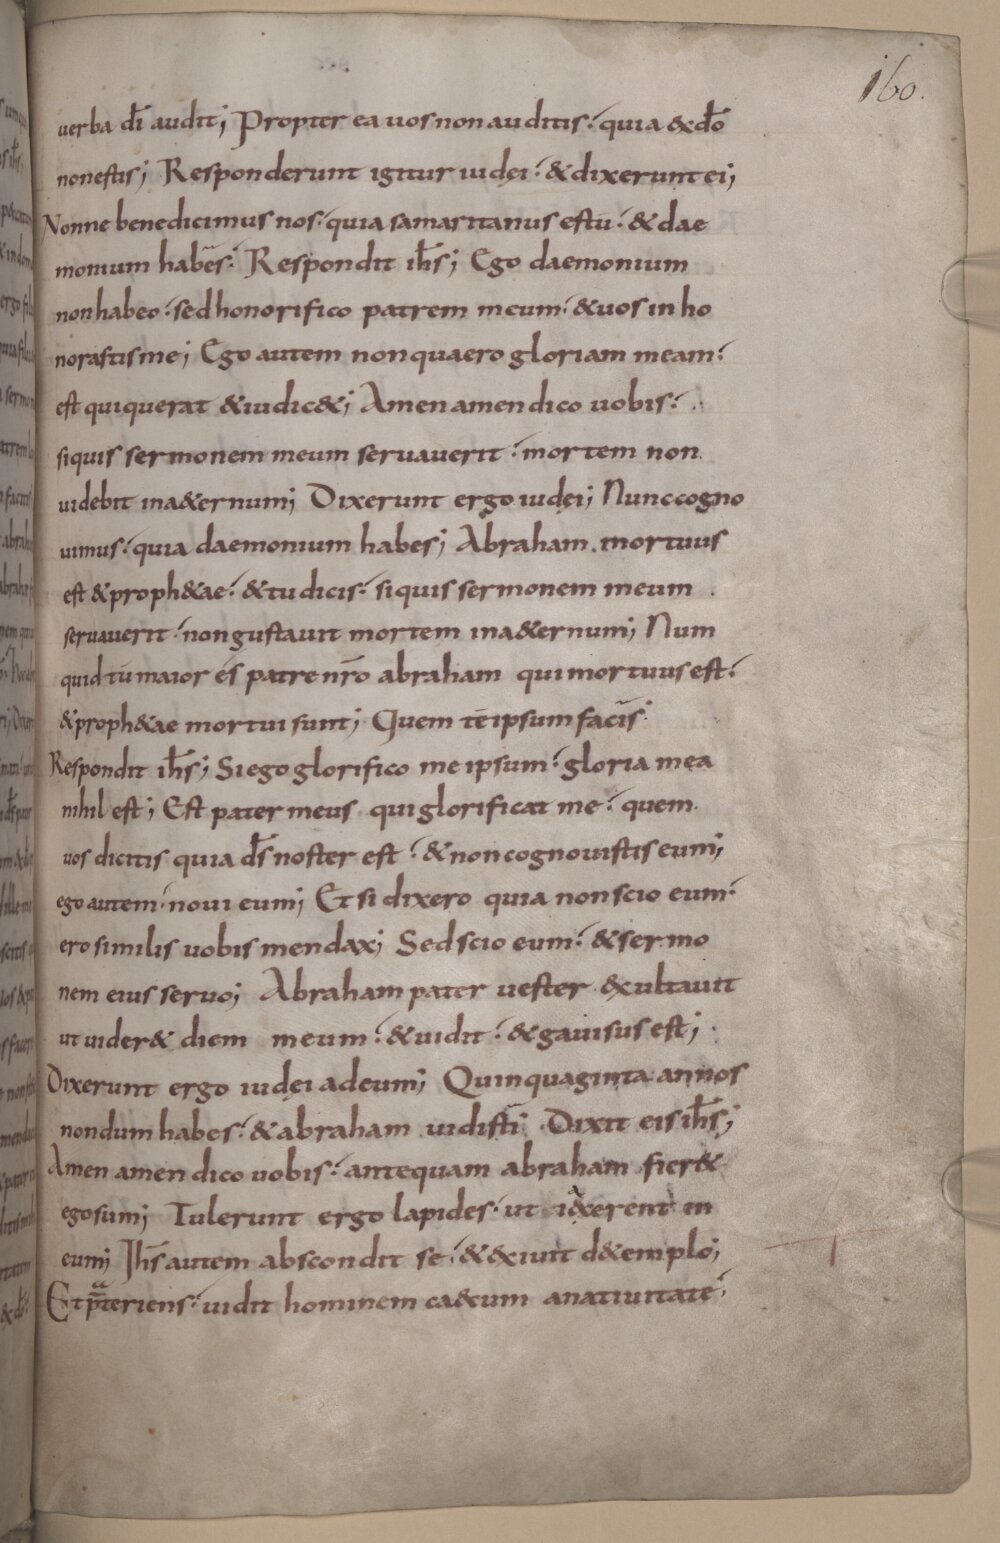 160.
uerba dī audit; Propter ea uos non auditis: quia & dō
non estis; Responderunt igitur iudęi: & dixerunt ei;
Nonne benedicimus nos: quia samaritanus es tū: & dae
monium habēs: Respondit ihs̄; Ego daemonium
non habeo: sed honorifico patrem meum: & uos inho
norastis me; Ego autem non quaero gloriam meam:
est qui querat & iudic&; Amen amen dico uobis:
siquis sermonem meum seruauerit: mortem non
uidebit in a&ernum; Dixerunt ergo iudęi; Nunc cogno
uimus: quia daemonium habes; Abraham mortuus
est & proph&ae: & tu dicis: siquis sermonem meum
seruauerit: non gustauit mortem in a&ernum; Num
quid tū maior és patre nr̄o abraham qui mortuus est:
& proph&ae mortui sunt; Quem té ipsum facis:
Respondit ihs̄; Si ego glorifico me ipsum: gloria mea
nihil est; Est pater meus qui glorificat me: quem
uos dicitis quia ds̄ noster est: & non cognouistis eum;
ego autem noui eum; Et si dixero quia non scio eum:
ero similis uobis mendax; Sed scio eum: & sermo
nem eius seruo; Abraham pater uester &xultauit
ut uider& diem meum: & uidit: & gauisus est;
Dixerunt ergo iudęi ad eum; Quinquaginta annos
nondum habes: & abraham uidisti; Dixit eis ihs̄;
Amen amen dico uobis: antequam abraham fier&
ego sum; Tulerunt ergo lapides: ut iaxerent in
eum; Ihs̄ autem abscondit se: & &xiuit d& emplo;
Et p̄teriens: uidit hominem ca&cum a natiuitate: